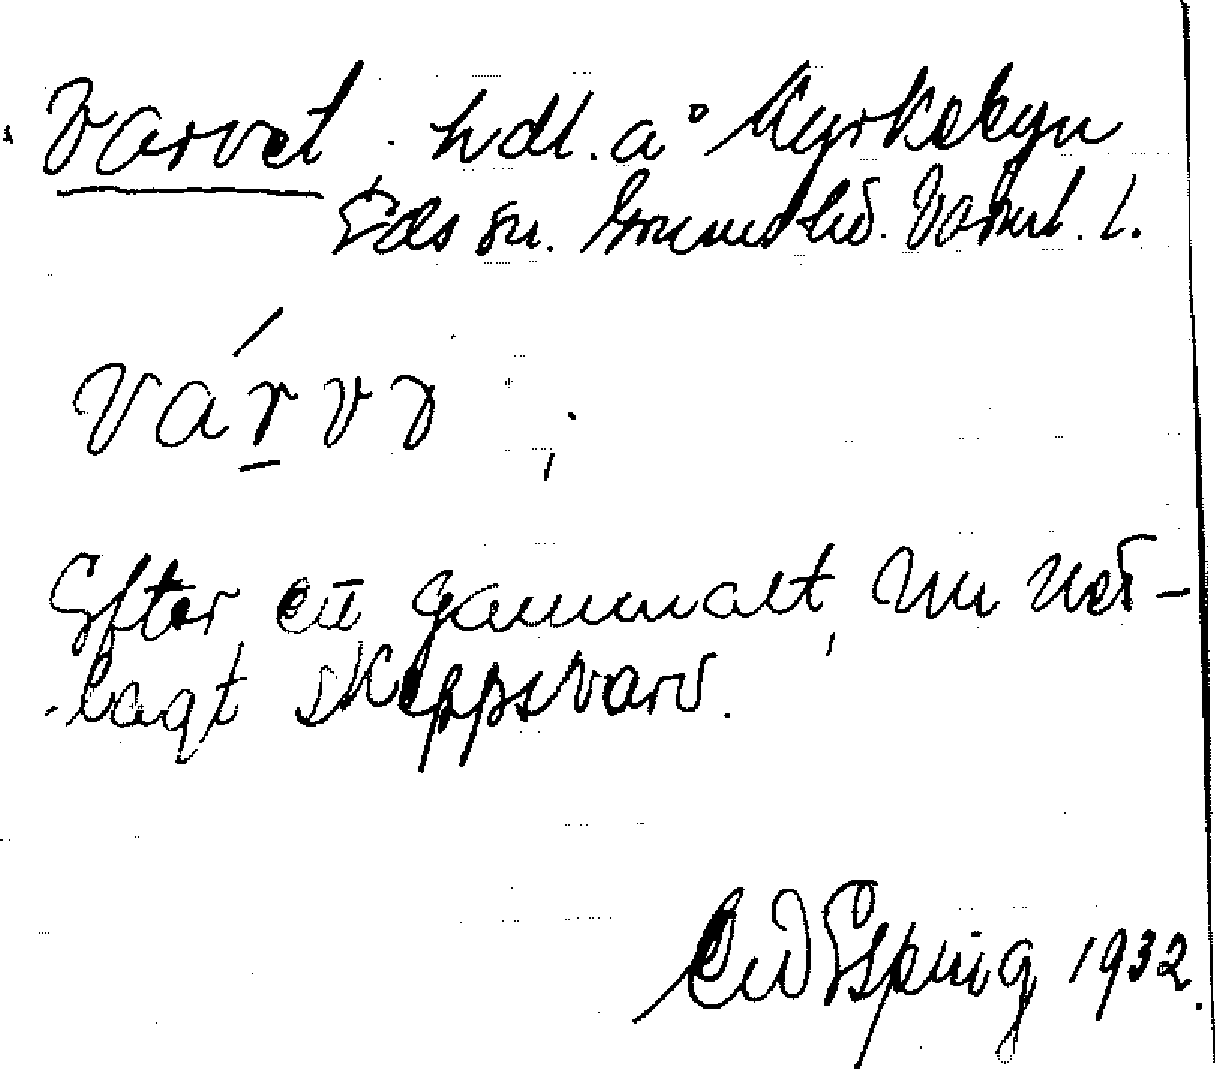 Varvet. hdl. å Kyrkebyn
Eds sn. Grums hd. Värml. l.
várvɔ
Efter ett gammalt, nu ned-
lagt skeppsvarv.
Espling 1932.